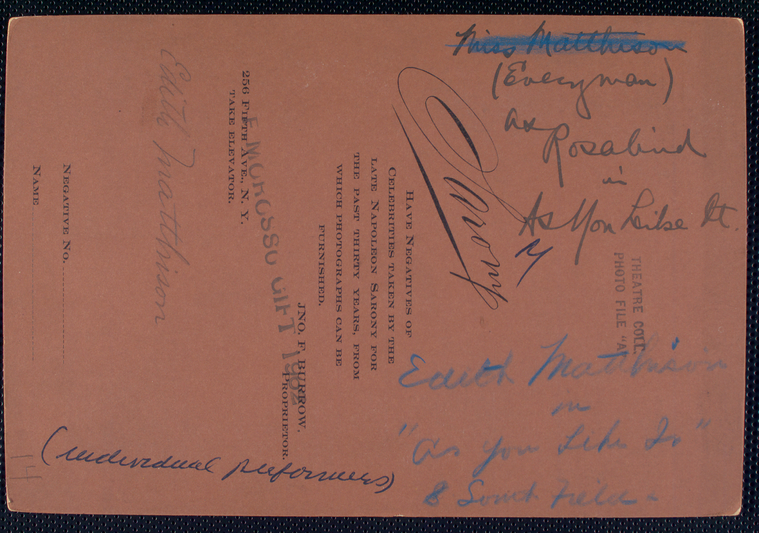 Miss Matthison
(Everyman)
as
Rosalind
in
As You Like It.
Sarony
HAVE NEGATIVES OF
CELEBRITIES TAKEN BY THE
LATE NAPOLEON SARONY FOR
THE PAST THIRTY YEARS, FROM
WHICH PHOTOGRAPHS CAN BE
FURNISHED.
JNO. F. BURROW,
PROPRIETOR.
256 FIFTH AVE., N. Y.
TAKE ELEVATOR.
NEGATIVE NO.
NAME
MOROSSO GIFT
THEATRE COLL.
PHOTO FILE "A"
Edith Matthison
Edith Matthison
in
"As You Like It"
8
(individual performers)
14